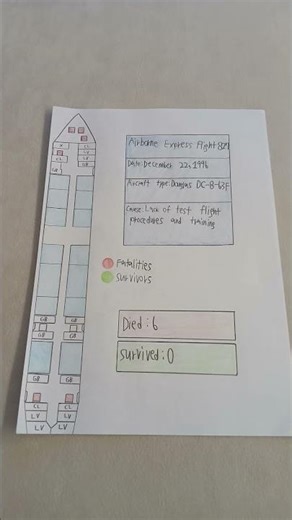 Airborne Express Flight 827
Date: December 22, 1996
Aircraft type: Douglas DC-8-63F
Cause: Lack of test flight
procedures and training
Fatalities
Survivors
Died: 6
Survived: 0
CL
CL
LV
LV
GB
GB
GB
GB
GB
GB
GB
GB
CL
CL
LV
LV
LV
LV